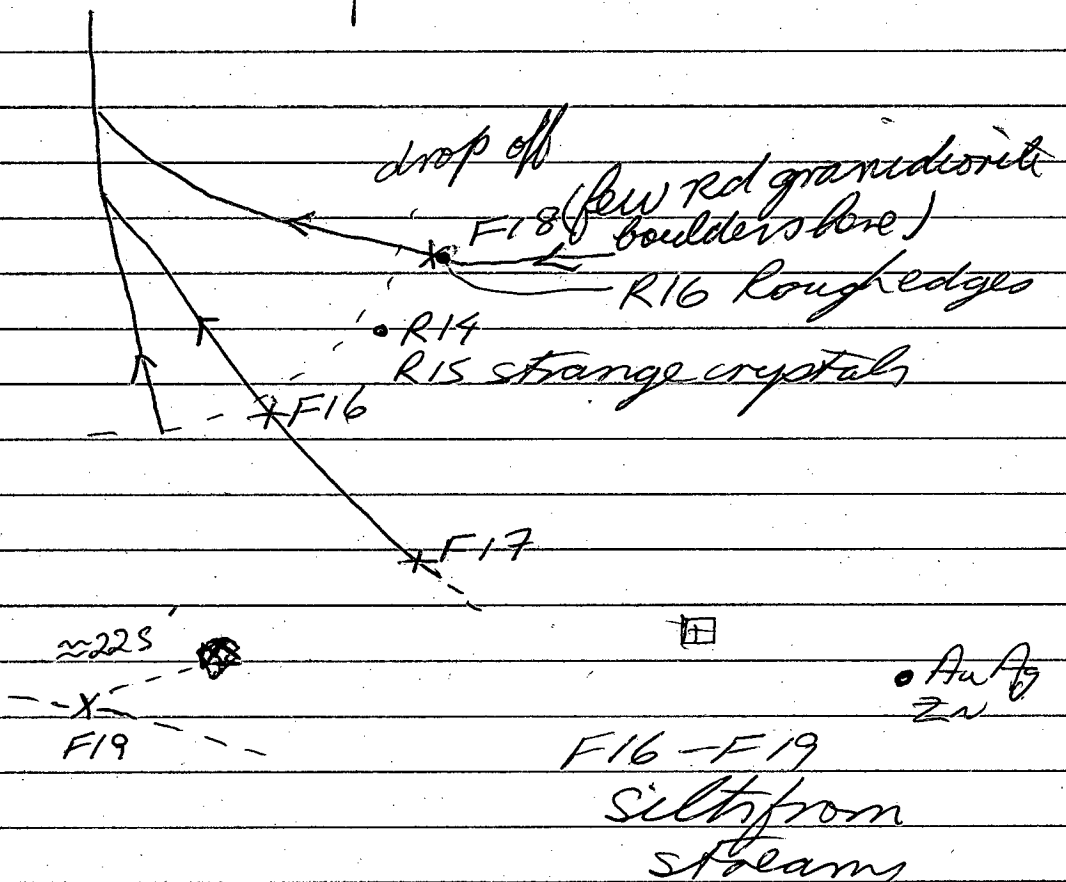 drop off
F18 (few Rd granidiorite
boulders here)
R16 Rough edges
R14
R15 strange crystals
F16
F17
≈225
Au Ag
Zn
F19
F16 - F19
Silts from
streams